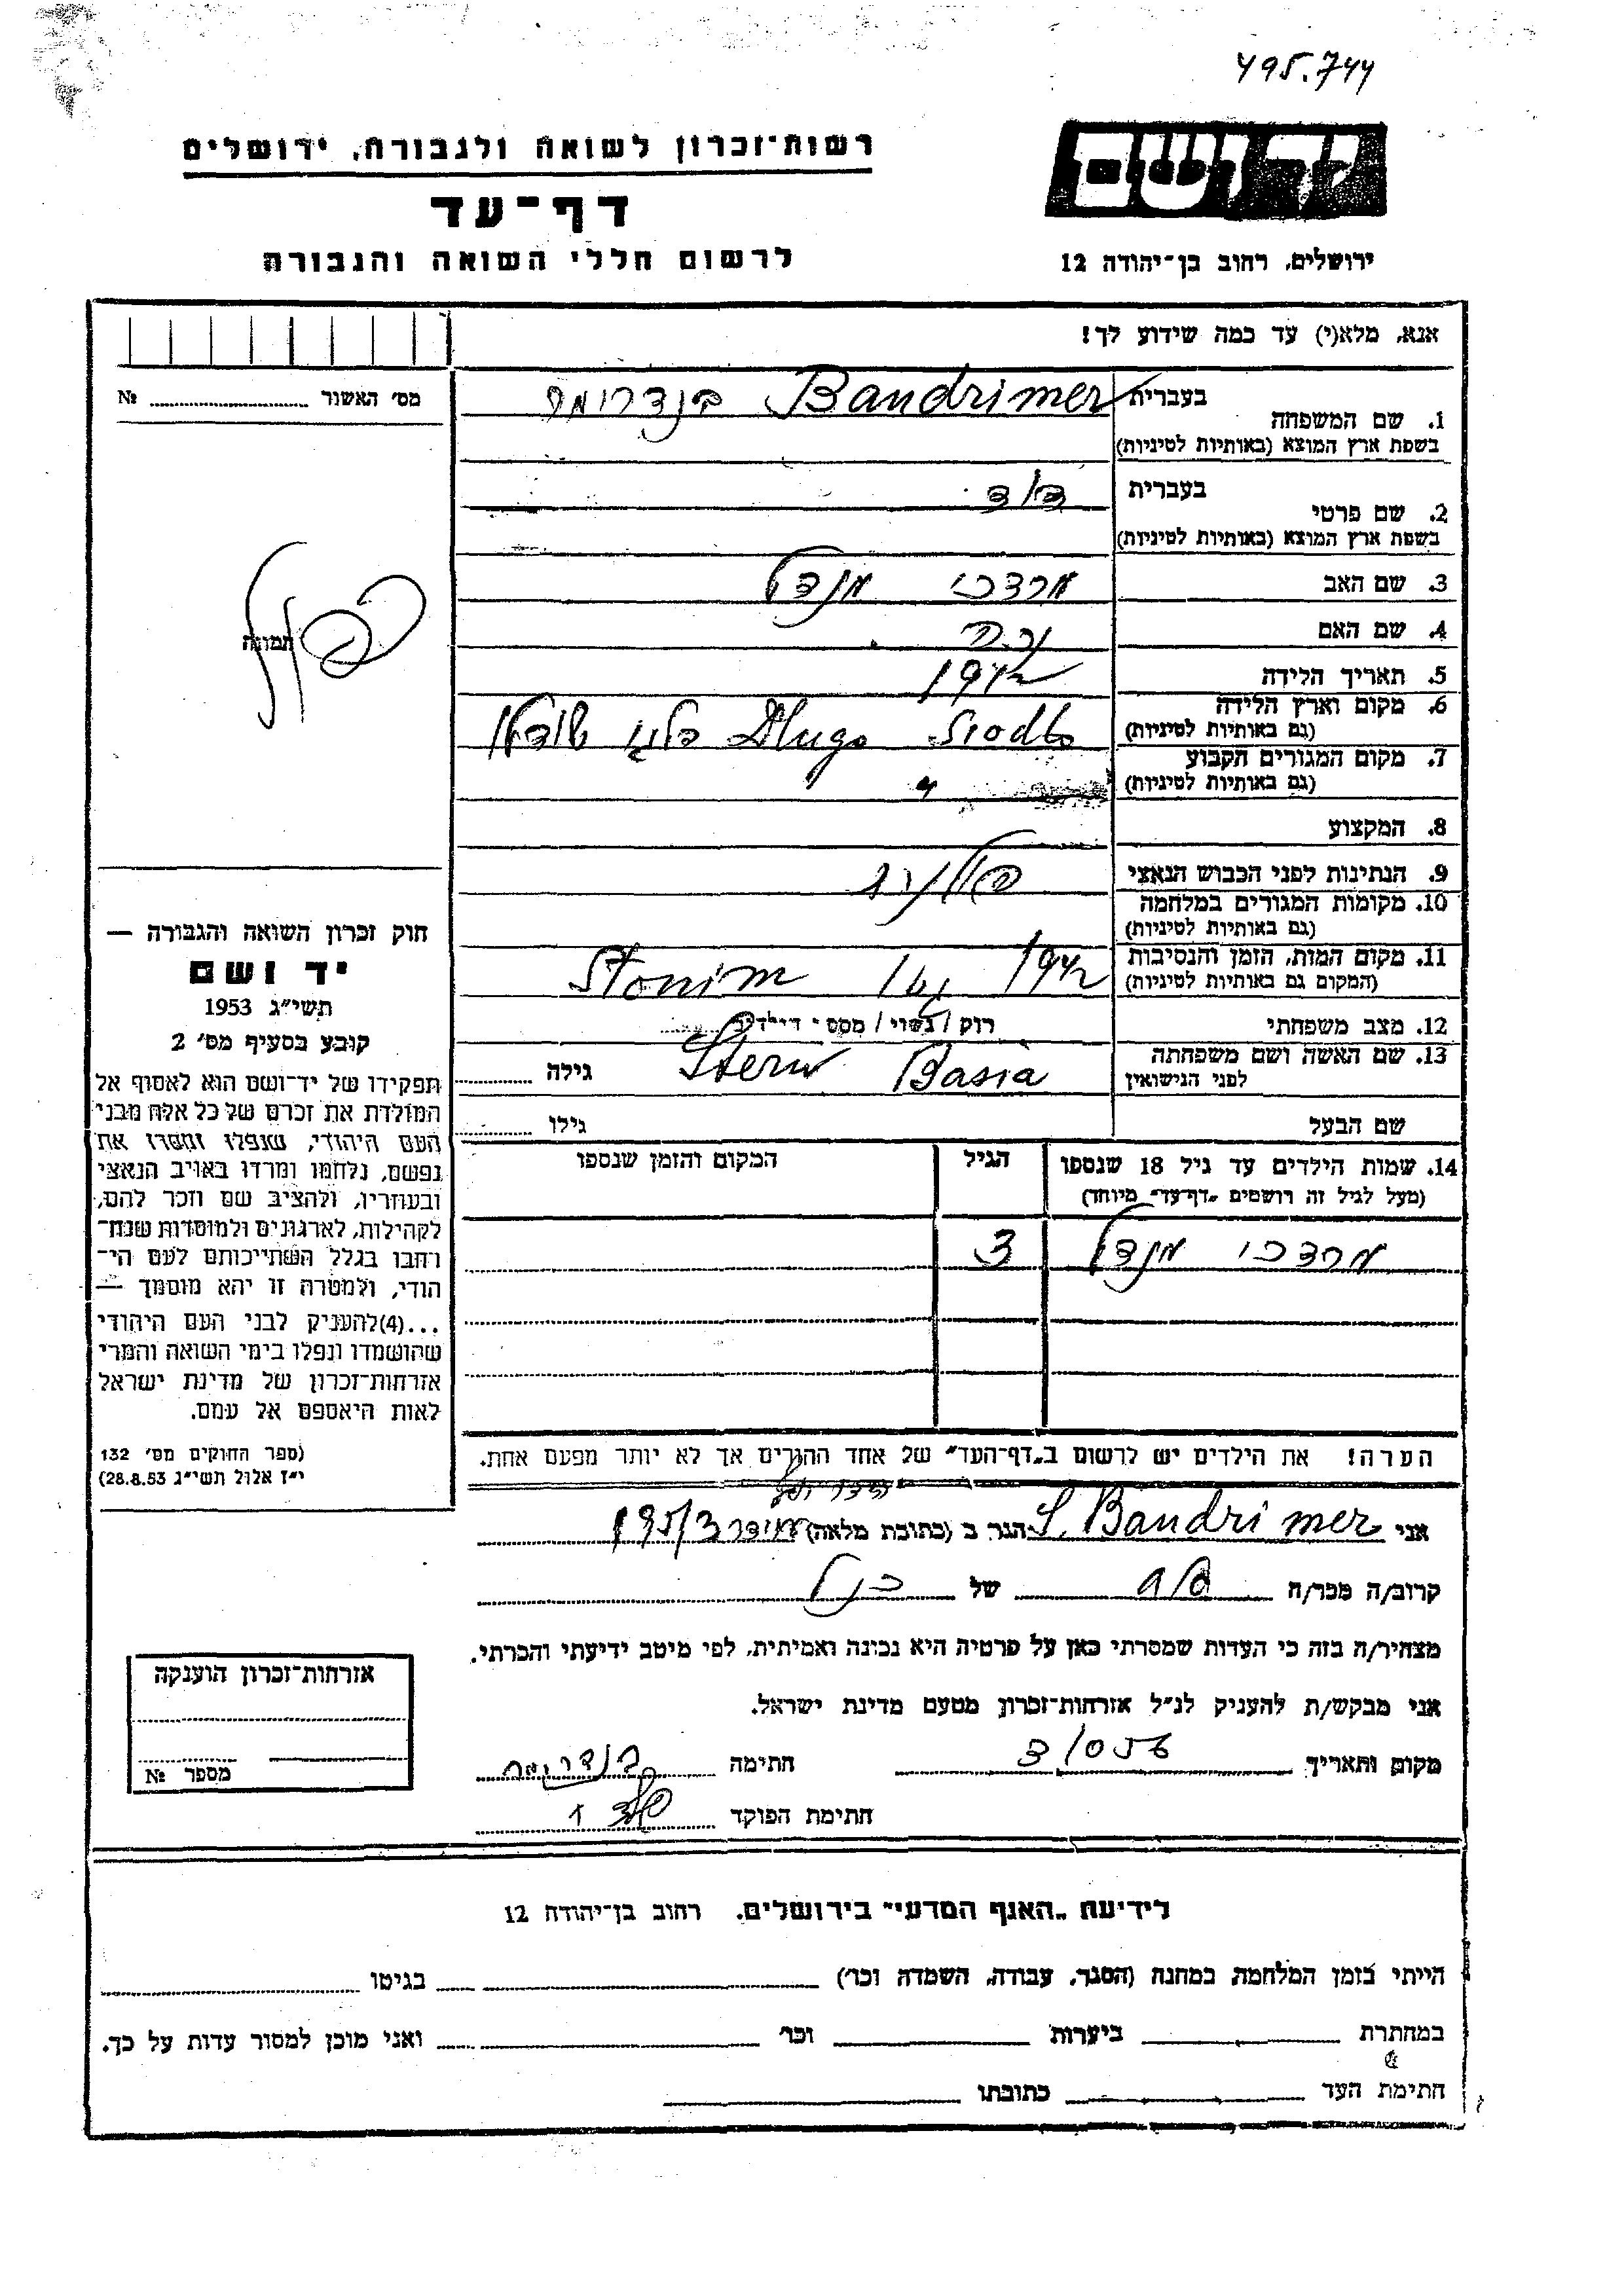 495.744
יד ושם
רשות-זכרון לשואה ולגבורה, ירושלים
דף-עד
לרשום חללי השואה והגבורה
ירושלים, רחוב בן-יהודה 12
אנא, מלא(י) עד כמה שידוע לך!
מס' האשור № 
1. שם המשפחה בעברית Bandrimer בנדרימר
בשפת ארץ המוצא (באותיות לטיניות)
2. שם פרטי בעברית דוד
בשפת ארץ המוצא (באותיות לטיניות)
3. שם האב מרדכי מנדל
4. שם האם
5. תאריך הלידה
6. מקום וארץ הלידה Dlugo Siodlo
(גם באותיות לטיניות)
7. מקום המגורים הקבוע "
(גם באותיות לטיניות)
8. המקצוע
9. הנתינות לפני הכבוש הנאצי פולנית
10. מקומות המגורים במלחמה
(גם באותיות לטיניות)
11. מקום המות, הזמן והנסיבות Stonim
(המקום גם באותיות לטיניות)
12. מצב משפחתי רוק / נשוי / מספר הילדים
13. שם האשה ושם משפחתה Basia Stern גילה
לפני הנישואין
שם הבעל גילו
תמונה
כפול
חוק זכרון השואה והגבורה —
יד ושם
תשי"ג 1953
קובע בסעיף מס' 2
תפקידו של יד-ושם הוא לאסוף אל
המולדת את זכרם של כל אלה מבני
העם היהודי, שנפלו ומסרו את
נפשם, נלחמו ומרדו באויב הנאצי
ובעוזריו, ולהציב שם וזכר להם,
לקהילות, לארגונים ולמוסדות שנח-
רבו בגלל השתייכותם לעם הי-
הודי, ולמטרה זו יהא מוסמך —
...(4)להעניק לבני העם היהודי
שהושמדו ונפלו בימי השואה והמרי
אזרחות-זכרון של מדינת ישראל
לאות היאספם אל עמם.
(ספר החוקים מס' 132
י"ז אלול תשי"ג 28.8.53)
14. שמות הילדים עד גיל 18 שנספו הגיל המקום והזמן שנספו
(מעל לגיל זה רושמים „דף-עד" מיוחד)
מרדכי מנדל 3
הערה! את הילדים יש לרשום ב„דף-העד" של אחד ההורים אך לא יותר מפעם אחת.
אני S. Bandrimer הגר ב (כתובת מלאה) 195/3
קרוב/ה מכר/ה של
מצהיר/ה בזה כי העדות שמסרתי כאן על פרטיה היא נכונה ואמיתית, לפי מיטב ידיעתי והכרתי.
אני מבקש/ת להעניק לנ"ל אזרחות-זכרון מטעם מדינת ישראל.
מקום ותאריך חתימה בנדרימר
חתימת הפוקד
אזרחות-זכרון הוענקה
מספר №
לידיעת „האגף המדעי" בירושלים, רחוב בן-יהודה 12
הייתי בזמן המלחמה במחנה (הסגר, עבודה, השמדה וכו') בגיטו
במחתרת ביערות וכו' ואני מוכן למסור עדות על כך.
חתימת העד כתובתו